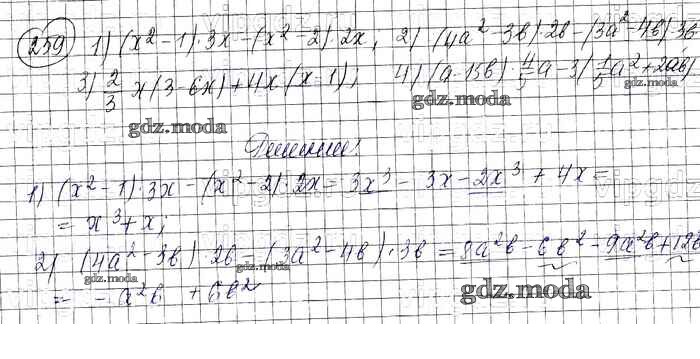 259 1) (x² - 1)·3x - (x² - 2)·2x; 2) (4a² - 3b)·2b - (3a² - 4b)·3b
3) 2/3 x(3 - 6x) + 4x(x - 1); 4) (a - 15b)·4/5 a - 3(1/5 a² + 2ab)
gdz.moda gdz.moda gdz.moda
Решение:
1) (x² - 1)·3x - (x² - 2)·2x = 3x³ - 3x - 2x³ + 4x =
= x³ + x;
2) (4a² - 3b)·2b - (3a² - 4b)·3b = 8a²b - 6b² - 9a²b + 12b
gdz.moda gdz.moda
= - a²b + 6b²
gdz.moda